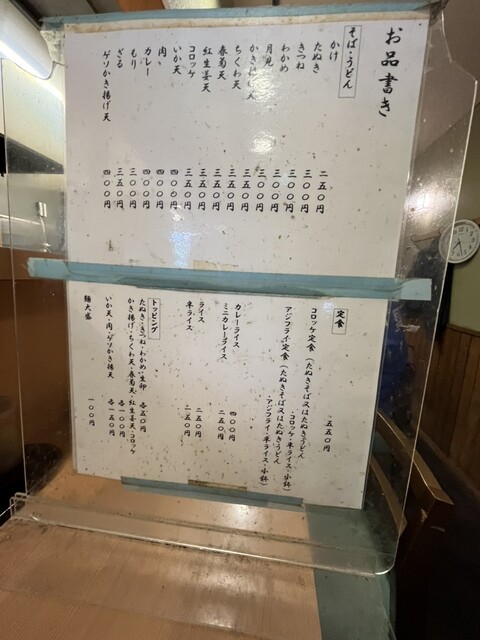 お品書き
そば・うどん
かけ 二五〇円
たぬき 三〇〇円
きつね 三〇〇円
わかめ 三〇〇円
月見 三〇〇円
かき揚げ天 三五〇円
ちくわ天 三五〇円
春菊天 三五〇円
紅生姜天 三五〇円
コロッケ 三五〇円
いか天 四〇〇円
肉 四〇〇円
カレー 四〇〇円
もり 三〇〇円
ざる 三五〇円
ゲソかき揚げ天 四〇〇円
定食
五五〇円
コロッケ定食(たぬきそば又はたぬきうどん
・コロッケ・半ライス・小鉢)
アジフライ定食(たぬきそば又はたぬきうどん
・アジフライ・半ライス・小鉢)
カレーライス 四〇〇円
ミニカレーライス 二五〇円
ライス 二五〇円
半ライス 一五〇円
トッピング
たぬき・きつね・わかめ・生卵 各五〇円
かき揚げ・ちくわ天・春菊天・紅生姜天・コロッケ 各一〇〇円
いか天・肉・ゲソかき揚げ天 各一五〇円
麺大盛 一〇〇円